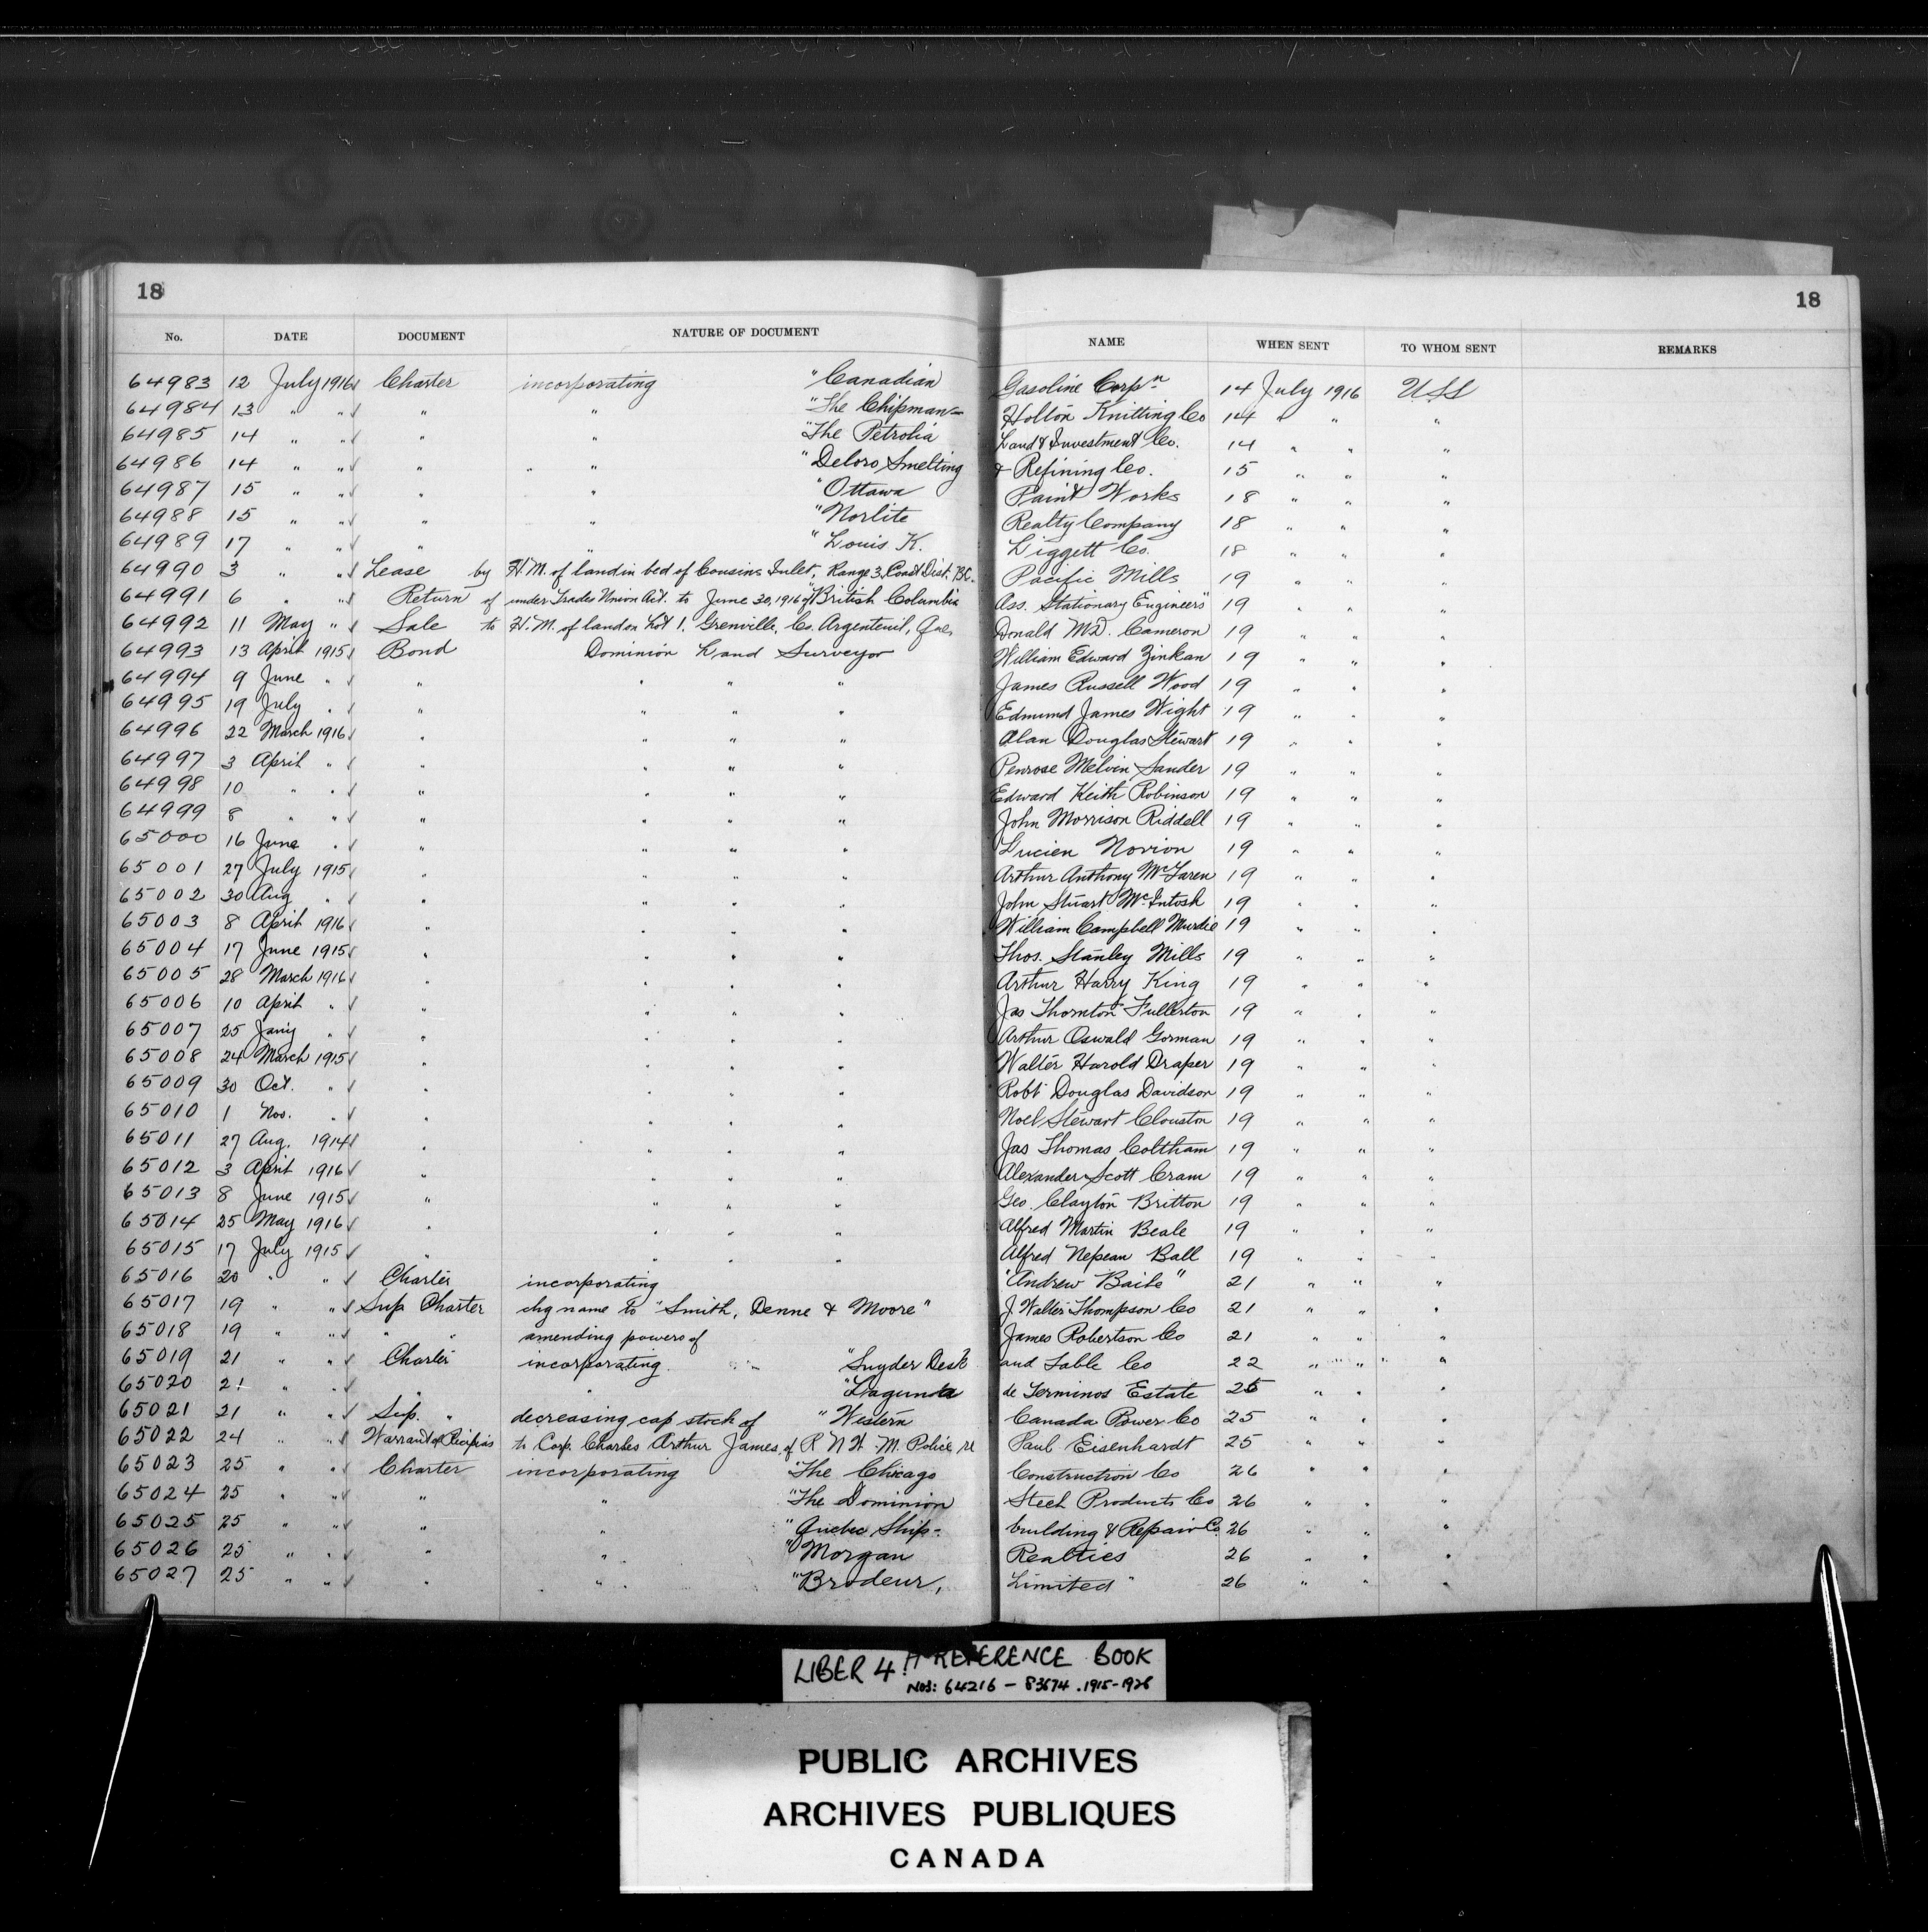 18 18
No. DATE DOCUMENT NATURE OF DOCUMENT NAME WHEN SENT TO WHOM SENT REMARKS
64983 12 July 1916 Charter incorporating "Canadian Gasoline Corpn 14 July 1916 USS
64984 13 " " " " "The Chipman- Holton Knitting Co 14 " " "
64985 14 " " " " "The Petrolia Land & Investment Co. 14 " " "
64986 14 " " " " " "Deloro Smelting & Refining Co. 15 " " "
64987 15 " " " " "Ottawa Paint Works 18 " " "
64988 15 " " " " "Norlite Realty Company 18 " " "
64989 17 " " " " "Louis K. Liggett Co. 18 " " "
64990 3 " " Lease by H.M. of land in bed of Cousins Inlet, Range 3, Coast Dist. B.C. Pacific Mills 19 " " "
64991 6 " " Return of under Trades Union Act. to June 30, 1916 of "British Columbia Ass. Stationary Engineers" 19 " " "
64992 11 May " Sale to H.M. of land on Lot 1, Grenville, Co. Argenteuil, Que. Donald McD. Cameron 19 " " "
64993 13 April 1915 Bond Dominion Land Surveyor William Edward Zinkan 19 " " "
64994 9 June " " " " " James Russell Wood 19 " " "
64995 19 July " " " " " Edmund James Wight 19 " " "
64996 22 March 1916 " " " " Alan Douglas Stewart 19 " " "
64997 3 April " " " " " Penrose Melvin Sander 19 " " "
64998 10 " " " " " " Edward Keith Robinson 19 " " "
64999 8 " " " " " " John Morrison Riddell 19 " " "
65000 16 June " " " " " Lucien Norion 19 " " "
65001 27 July 1915 " " " " Arthur Anthony McLaren 19 " " "
65002 30 Aug " " " " " John Stuart McIntosh 19 " " "
65003 8 April 1916 " " " " William Campbell Murdie 19 " " "
65004 17 June 1915 " " " " Thos. Stanley Mills 19 " " "
65005 28 March 1916 " " " " Arthur Harry King 19 " " "
65006 10 April " " " " " Jas Thornton Fullerton 19 " " "
65007 25 Jany " " " " " Arthur Oswald Gorman 19 " " "
65008 24 March 1915 " " " " Walter Harold Draper 19 " " "
65009 30 Oct. " " " " " Robt Douglas Davidson 19 " " "
65010 1 Nov. " " " " " Noel Stewart Clouston 19 " " "
65011 27 Aug. 1914 " " " " Jas Thomas Coltham 19 " " "
65012 3 April 1916 " " " " Alexander Scott Cram 19 " " "
65013 8 June 1915 " " " " Geo. Clayton Britton 19 " " "
65014 25 May 1916 " " " " Alfred Martin Beale 19 " " "
65015 17 July 1915 " " " " Alfred Nepean Ball 19 " " "
65016 20 " " Charter incorporating "Andrew Baile" 21 " " "
65017 19 " " Sup Charter chg name to "Smith, Denne & Moore" J. Walter Thompson Co 21 " " "
65018 19 " " " " amending powers of James Robertson Co 21 " " "
65019 21 " " Charter incorporating "Snyder Desk and Table Co 22 " " "
65020 21 " " " " "Lagunda de Terminos Estate 25 " " "
65021 21 " " Sup. " decreasing cap stock of "Western Canada Power Co 25 " " "
65022 24 " " Warrant of Recipias to Corp. Charles Arthur James, of R N W M. Police re Paul Eisenhardt 25 " " "
65023 25 " " Charter incorporating "The Chicago Construction Co 26 " " "
65024 25 " " " " "The Dominion Steel Products Co 26 " " "
65025 25 " " " " "Quebec Ship- building & Repair Co. 26 " " "
65026 25 " " " " "Morgan Realties 26 " " "
65027 25 " " " " "Brodeur, Limited" 26 " " "
LIBER 4 REFERENCE BOOK
NOS: 64216 - 83674 . 1915-1926
PUBLIC ARCHIVES
ARCHIVES PUBLIQUES
CANADA